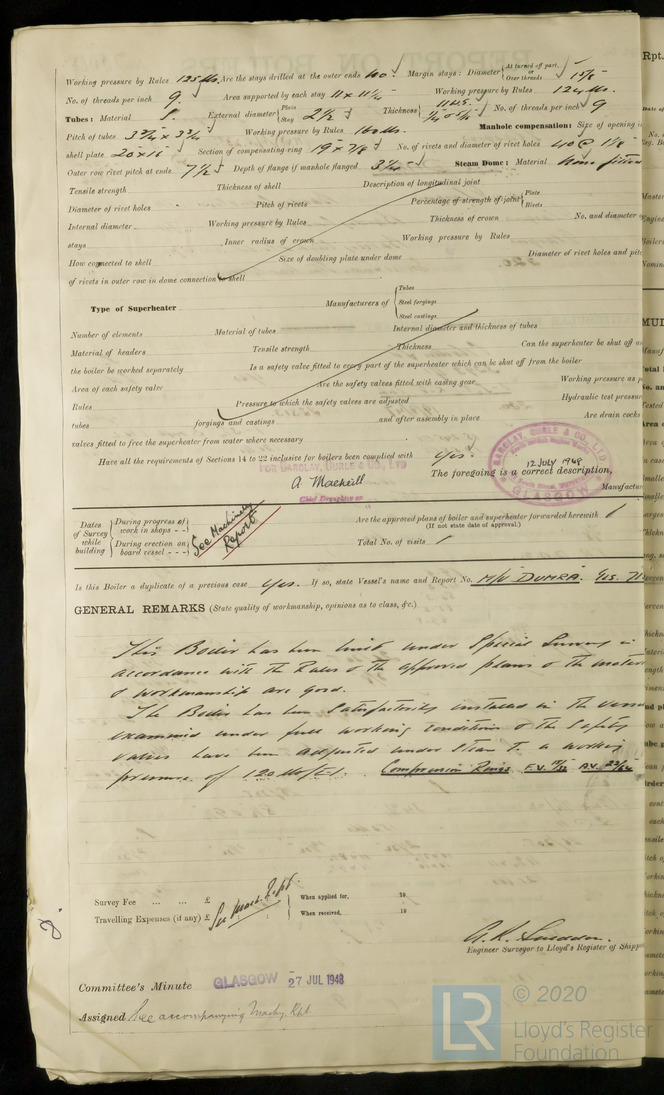 Working pressure by Rules 125 lbs. Are the stays drilled at the outer ends No. Margin stays: Diameter { At turned off part, or Over threads 1 5/8"
No. of threads per inch 9. Area supported by each stay 11 x 11 1/2 Working pressure by Rules 124 lbs.
Tubes: Material S. External diameter { Plain Stay 2 1/2 Thickness { 11 W.G. 1/4 & 5/16 No. of threads per inch 9
Pitch of tubes 3 3/4 x 3 3/4 Working pressure by Rules 160 lbs Manhole compensation: Size of opening in
shell plate 20 x 16 Section of compensating ring 19 x 7/8 No. of rivets and diameter of rivet holes 40 @ 1 1/8
Outer row rivet pitch at ends 7 1/2 Depth of flange if manhole flanged 3 1/4 Steam Dome: Material None fitted
Tensile strength Thickness of shell Description of longitudinal joint
Diameter of rivet holes Pitch of rivets Percentage of strength of joint { Plate Rivets
Internal diameter Working pressure by Rules Thickness of crown No. and diameter of
stays Inner radius of crown Working pressure by Rules
How connected to shell Size of doubling plate under dome Diameter of rivet holes and pitc
of rivets in outer row in dome connection to shell
Type of Superheater Manufacturers of { Tubes Steel forgings Steel castings
Number of elements Material of tubes Internal diameter and thickness of tubes
Material of headers Tensile strength Thickness Can the superheater be shut off a
the boiler be worked separately Is a safety valve fitted to every part of the superheater which can be shut off from the boiler
Area of each safety valve Are the safety valves fitted with easing gear Working pressure as p
Rules Pressure to which the safety valves are adjusted Hydraulic test pressur
tubes forgings and castings and after assembly in place Are drain cocks
valves fitted to free the superheater from water where necessary
Have all the requirements of Sections 14 to 22 inclusive for boilers been complied with Yes.
FOR BARCLAY, CURLE & CO., LTD
BARCLAY, CURLE & CO., LTD
12 JULY 1948
GLASGOW
The foregoing is a correct description,
Manufactur
Chief Draughtsman
Dates of Survey while building { During progress of work in shops - - During erection on board vessel - - - See Machinery Report.
Are the approved plans of boiler and superheater forwarded herewith
(If not state date of approval.)
Total No. of visits
Is this Boiler a duplicate of a previous case Yes. If so, state Vessel's name and Report No. M/V "DUMRA".
GENERAL REMARKS (State quality of workmanship, opinions as to class, &c.)
This Boiler has been built under Special Survey in
accordance with the Rules & the approved plans & the mater
& workmanship are good.
The Boiler has been satisfactorily installed in the vesse
examined under full working conditions & the safety
valves have been adjusted under steam to a working
pressure of 120 lbs/□". Compression Rings F.V. A.V. 23/64
Survey Fee ... ... £ See Mach. Rpt. When applied for, 19
Travelling Expenses (if any) £ When received, 19
Engineer Surveyor to Lloyd's Register of Shipp
Committee's Minute GLASGOW 27 JUL 1948
Assigned See accompanying Machy. Rpt.
LR © 2020
Lloyd's Register
Foundation
Rpt.